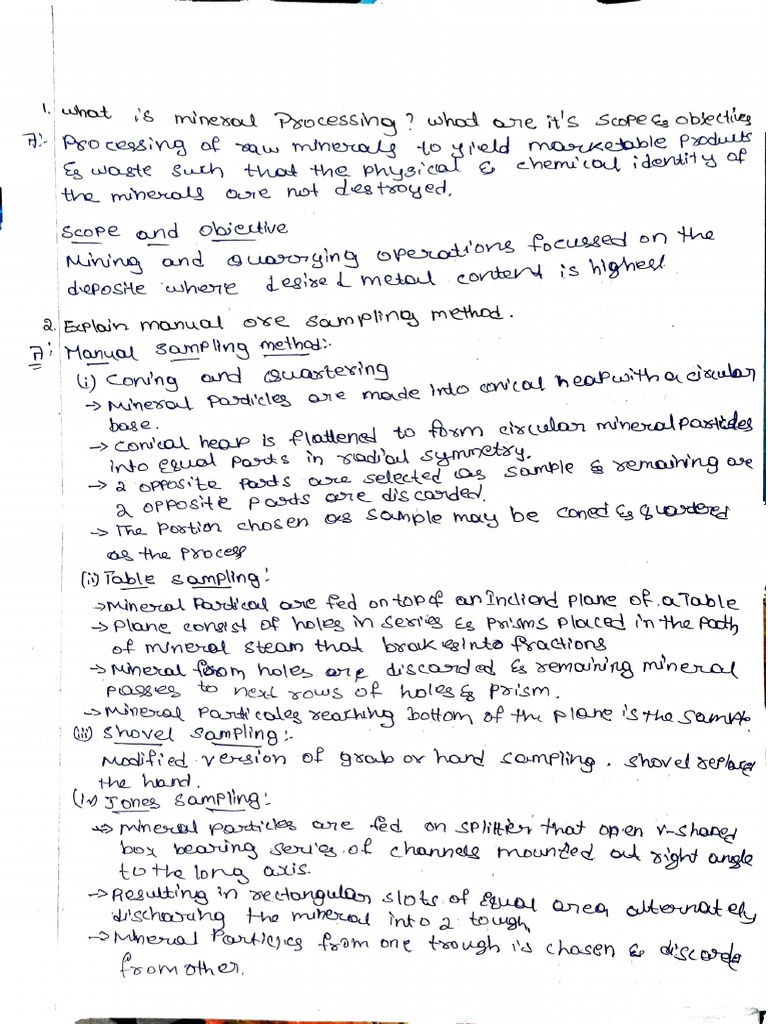 1. what is mineral Processing? what are it's scope & objectives
A:- Processing of raw minerals to yield marketable products
& waste such that the physical & chemical identity of
the minerals are not destroyed.
Scope and objective
Mining and quarrying operations focussed on the
deposite where desired metal content is highest
2. Explain manual ore sampling method.
A: Manual sampling method:-
(i) Coning and Quartering
→ Mineral particles are made into conical heap with a circular
base.
→ conical heap is flattened to form circular mineral particles
into equal parts in radial symmetry.
→ 2 opposite parts are selected as sample & remaining are
2 opposite parts are discarded.
→ The portion chosen as sample may be coned & quartered
as the process
(ii) Table sampling:
→ Mineral Partical are fed on top of an Incliend plane of a Table
→ Plane consist of holes in series & prisms placed in the path
of mineral steam that brakes into fractions
→ Mineral from holes are discarded & remaining mineral
passes to next rows of holes & prism.
→ Mineral particales reaching bottom of the plane is the sample
(iii) Shovel sampling:-
Modified version of grab or hand sampling. shovel replace
the hand.
(iv) Jones sampling:-
→ mineral particles are fed on splitter that open v-shaped
box bearing series of channels mounted at right angle
to the long axis.
→ Resulting in rectangular slots of equal area alternately
discharing the mineral into 2 tough
→ Mineral Particles from one trough is chosen & discarde
from other.